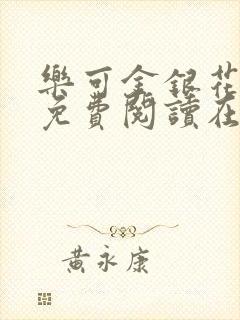 樂可金銀花
免費閱讀在
黃永康